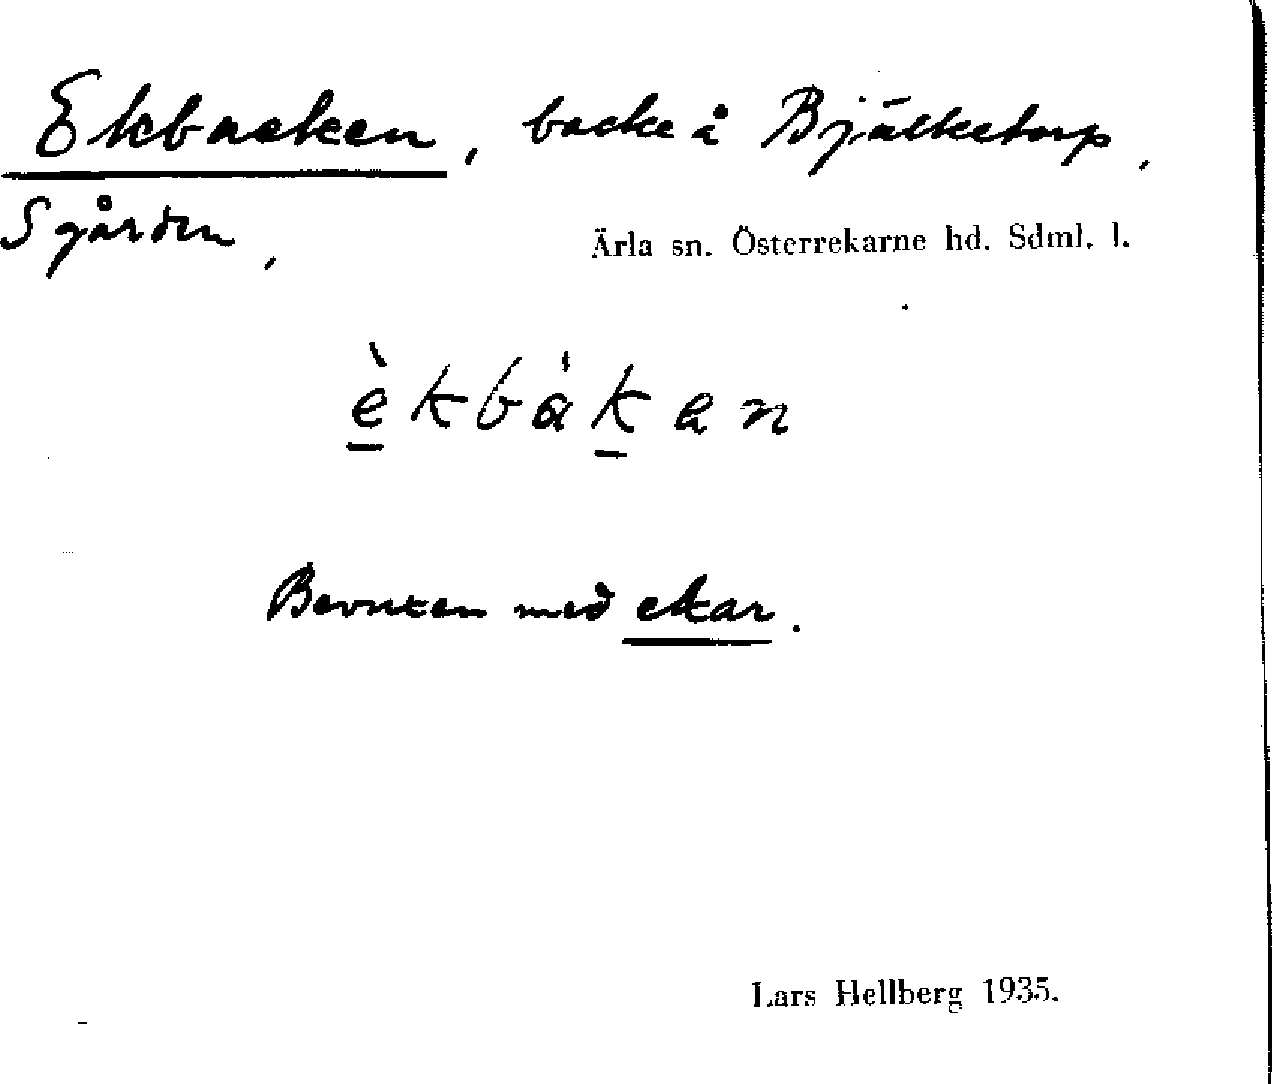 Ekbacken, backe å Bjälketorp,
Sgården,
Ärla sn. Österrekarne hd. Sdml. l.
èkbákan
Bevuxen med ekar.
Lars Hellberg 1935.